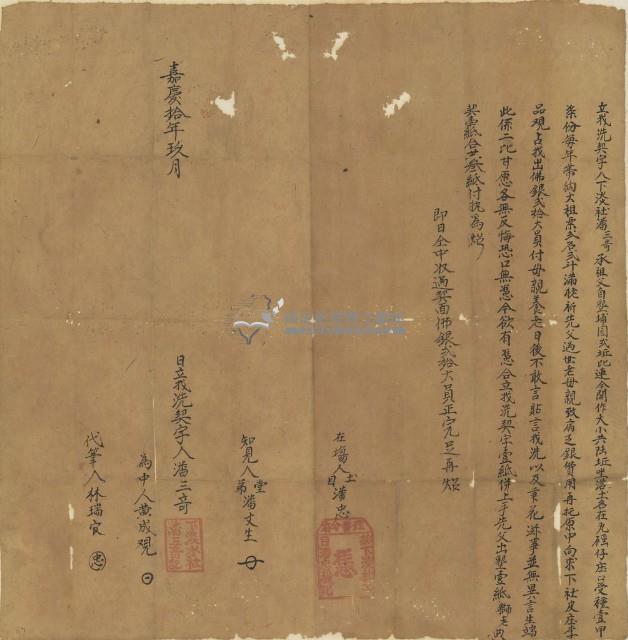 立找洗契字人下淡社潘三奇承祖父自墾埔園貳坵比連今開作大小共陸坵坐落土名在九䆀仔庄口受種壹甲
柒份每年帶納大租粟貳石貳斗滿斛祈先父過世老母親致病乏銀費用再托原中向求下社皮庄李
品觀占找出佛銀貳拾大員付母親養老日後不敢言貼言找洗以及重花滋事並無異言生端
此係二比甘愿各無反悔恐口無憑今欲有憑合立找洗契字壹紙併上手先父出墾壹紙
契壹紙合共叁紙付執為炤
即日仝中收過契面佛銀貳拾大員正完足再炤
在場人土目潘忠
知見人堂弟潘文生
日立找洗契字人潘三奇
為中人黃成觀
代筆人林瑞官 忠
嘉慶拾年玖月